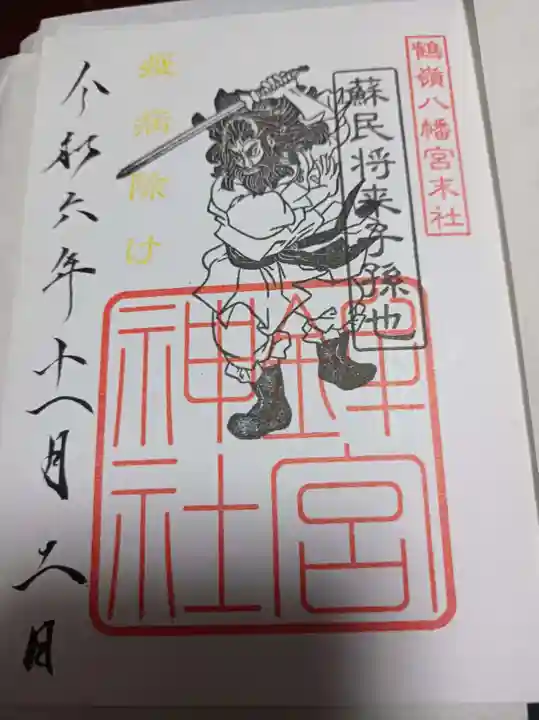 鶴嶺八幡宮末社
蘇民将来子孫也
疫病除け
鉾宮
神社
令和六年十一月二日